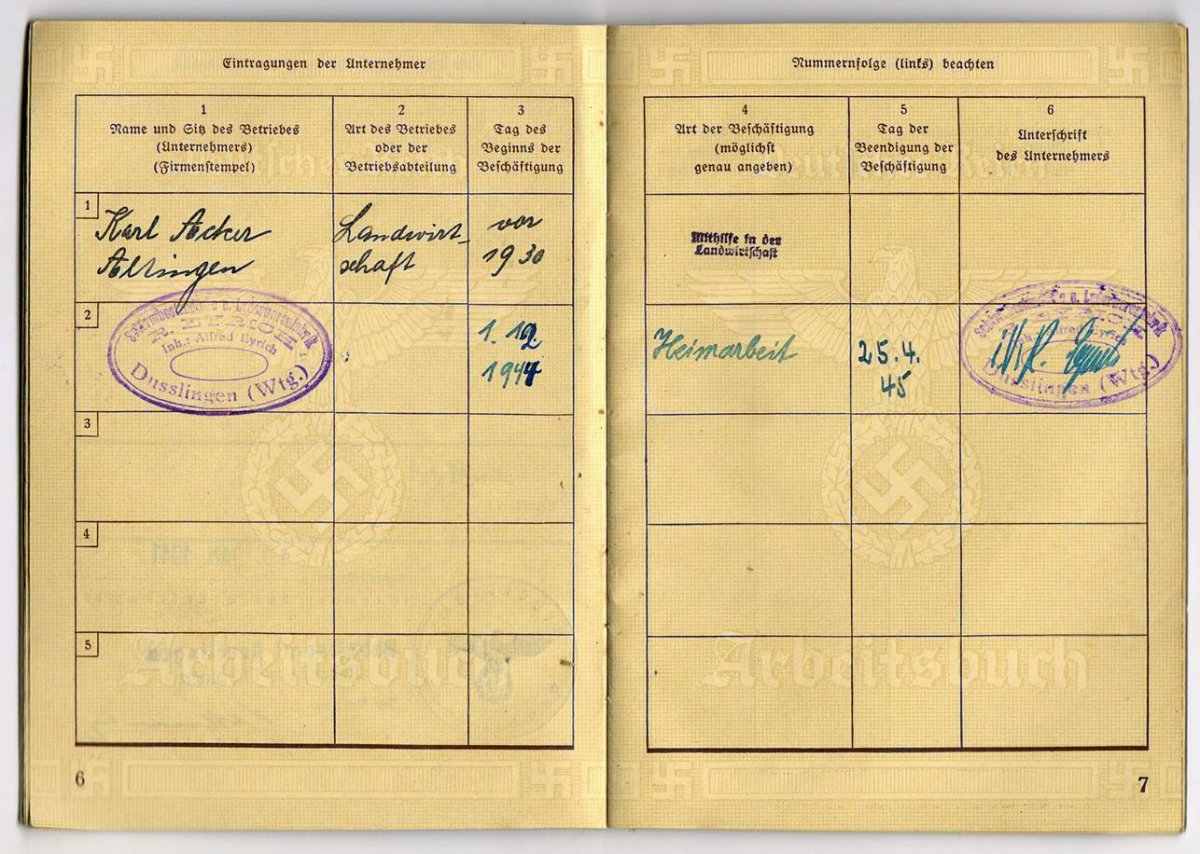 Eintragungen der Unternehmer
1
Name und Sitz des Betriebes
(Unternehmers)
(Firmenstempel)
2
Art des Betriebes
oder der
Betriebsabteilung
3
Tag des
Beginns der
Beschäftigung
1
Karl Acker
Altingen
Landwirt-
schaft
vor
1930
2
Inh.: Alfred Eyrich
Dusslingen (Wtg.)
1.12
1944
3
4
5
Arbeitsbuch
6
Nummernfolge (links) beachten
4
Art der Beschäftigung
(möglichst
genau angeben)
5
Tag der
Beendigung der
Beschäftigung
6
Unterschrift
des Unternehmers
Mithilfe in der
Landwirtschaft
Heimarbeit
25.4.
45
Inh.: Alfred Eyrich
Dusslingen (Wtg.)
Arbeitsbuch
7